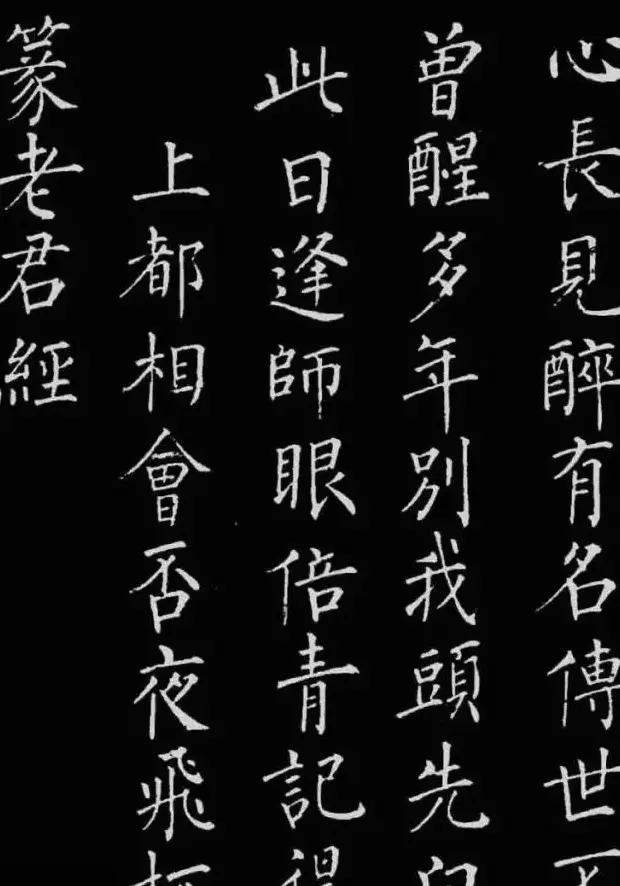 心長見醉有名傳世
曾醒多年別我頭先
此日逢師眼倍青記得
上都相會否夜飛
篆老君經